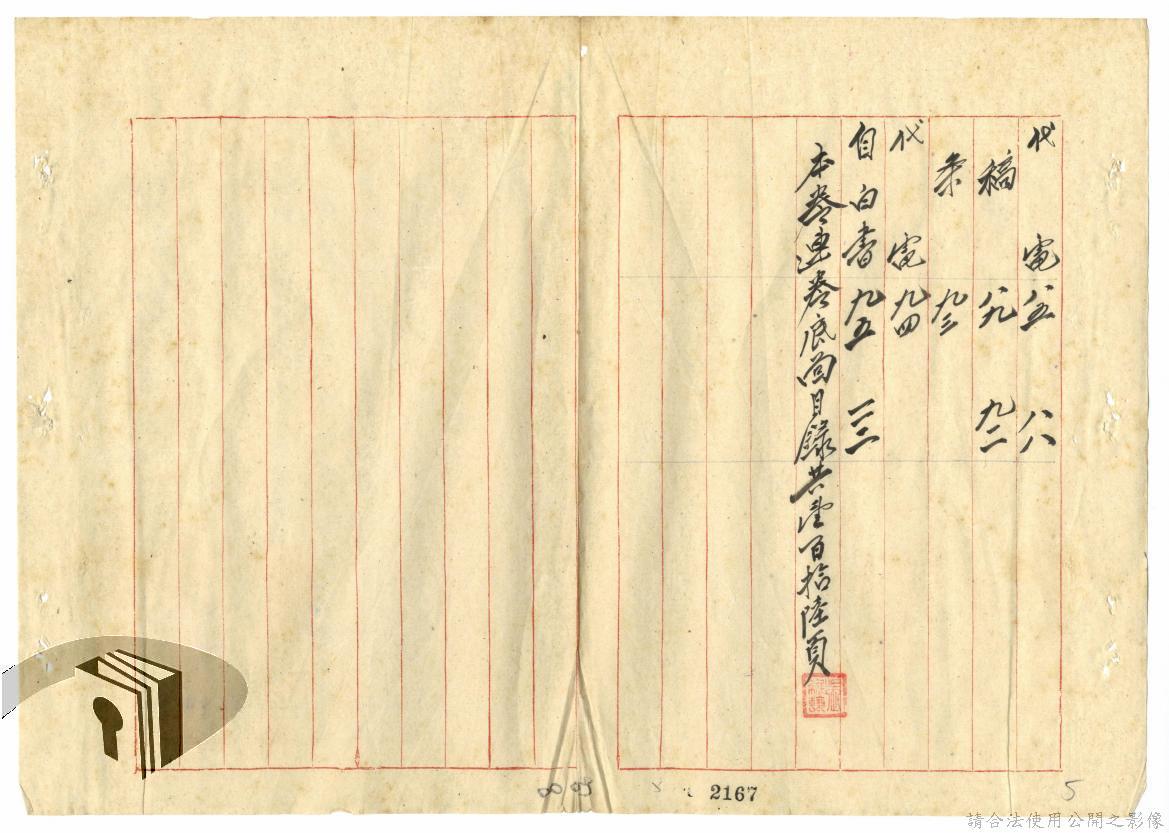 代電 八五 八八
稿 八九 九二
条 九三
代電 九四
自白書 九五 一一二
本卷連卷底面目錄共壹百拾陸頁
2167
5
請合法使用公開之影像